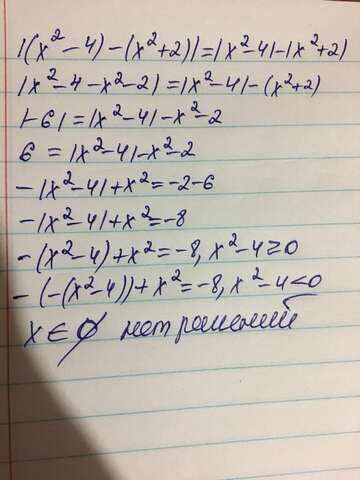 |(x²-4)-(x²+2)|=|x²-4|-|x²+2)
|x²-4-x²-2)=|x²-4|-(x²+2)
|-6|=|x²-4|-x²-2
6=|x²-4|-x²-2
-|x²-4|+x²=-2-6
-|x²-4|+x²=-8
-(x²-4)+x²=-8, x²-4≥0
-(-(x²-4))+x²=-8, x²-4<0
x∈∅ нет решений